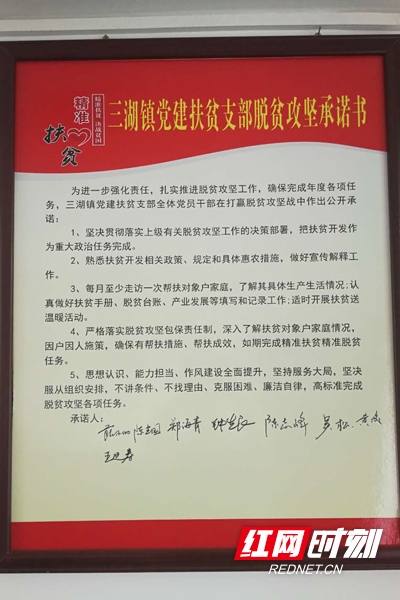 精准
扶贫
精准扶贫 决战贫困
三湖镇党建扶贫支部脱贫攻坚承诺书
为进一步强化责任，扎实推进脱贫攻坚工作，确保完成年度各项任
务，三湖镇党建扶贫支部全体党员干部在打赢脱贫攻坚战中作出公开承
诺：
1、坚决贯彻落实上级有关脱贫攻坚工作的决策部署，把扶贫开发作
为重大政治任务完成。
2、熟悉扶贫开发相关政策、规定和具体惠农措施，做好宣传解释工
作。
3、每月至少走访一次帮扶对象户家庭，了解其具体生产生活情况；认
真做好扶贫手册、脱贫台账、产业发展等填写和记录工作；适时开展扶贫送
温暖活动。
4、严格落实脱贫攻坚包保责任制，深入了解扶贫对象户家庭情况，
因户因人施策，确保有帮扶措施、帮扶成效，如期完成精准扶贫精准脱贫
任务。
5、思想认识、能力担当、作风建设全面提升，坚持服务大局，坚决
服从组织安排，不讲条件、不找理由、克服困难、廉洁自律，高标准完成
脱贫攻坚各项任务。
承诺人：
郑海青 陈志峰 吴松
红网时刻
REDNET.CN